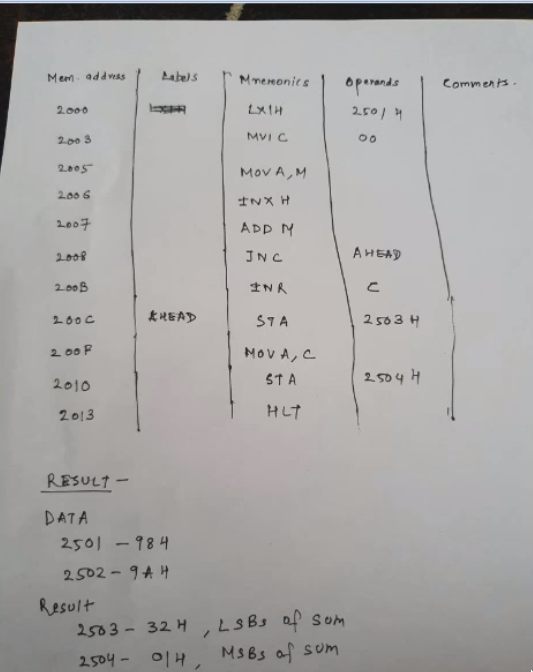 Mem. address Labels Mnemonics Operands Comments.
2000 LXIH 2501 H
2003 MVI C 00
2005 MOV A, M
2006 INX H
2007 ADD M
2008 JNC AHEAD
200B INR C
200C AHEAD STA 2503 H
200F MOV A, C
2010 STA 2504 H
2013 HLT
RESULT -
DATA
2501 - 98H
2502 - 9AH
Result
2503 - 32 H , LSBs of sum
2504 - 01H, MSBs of sum